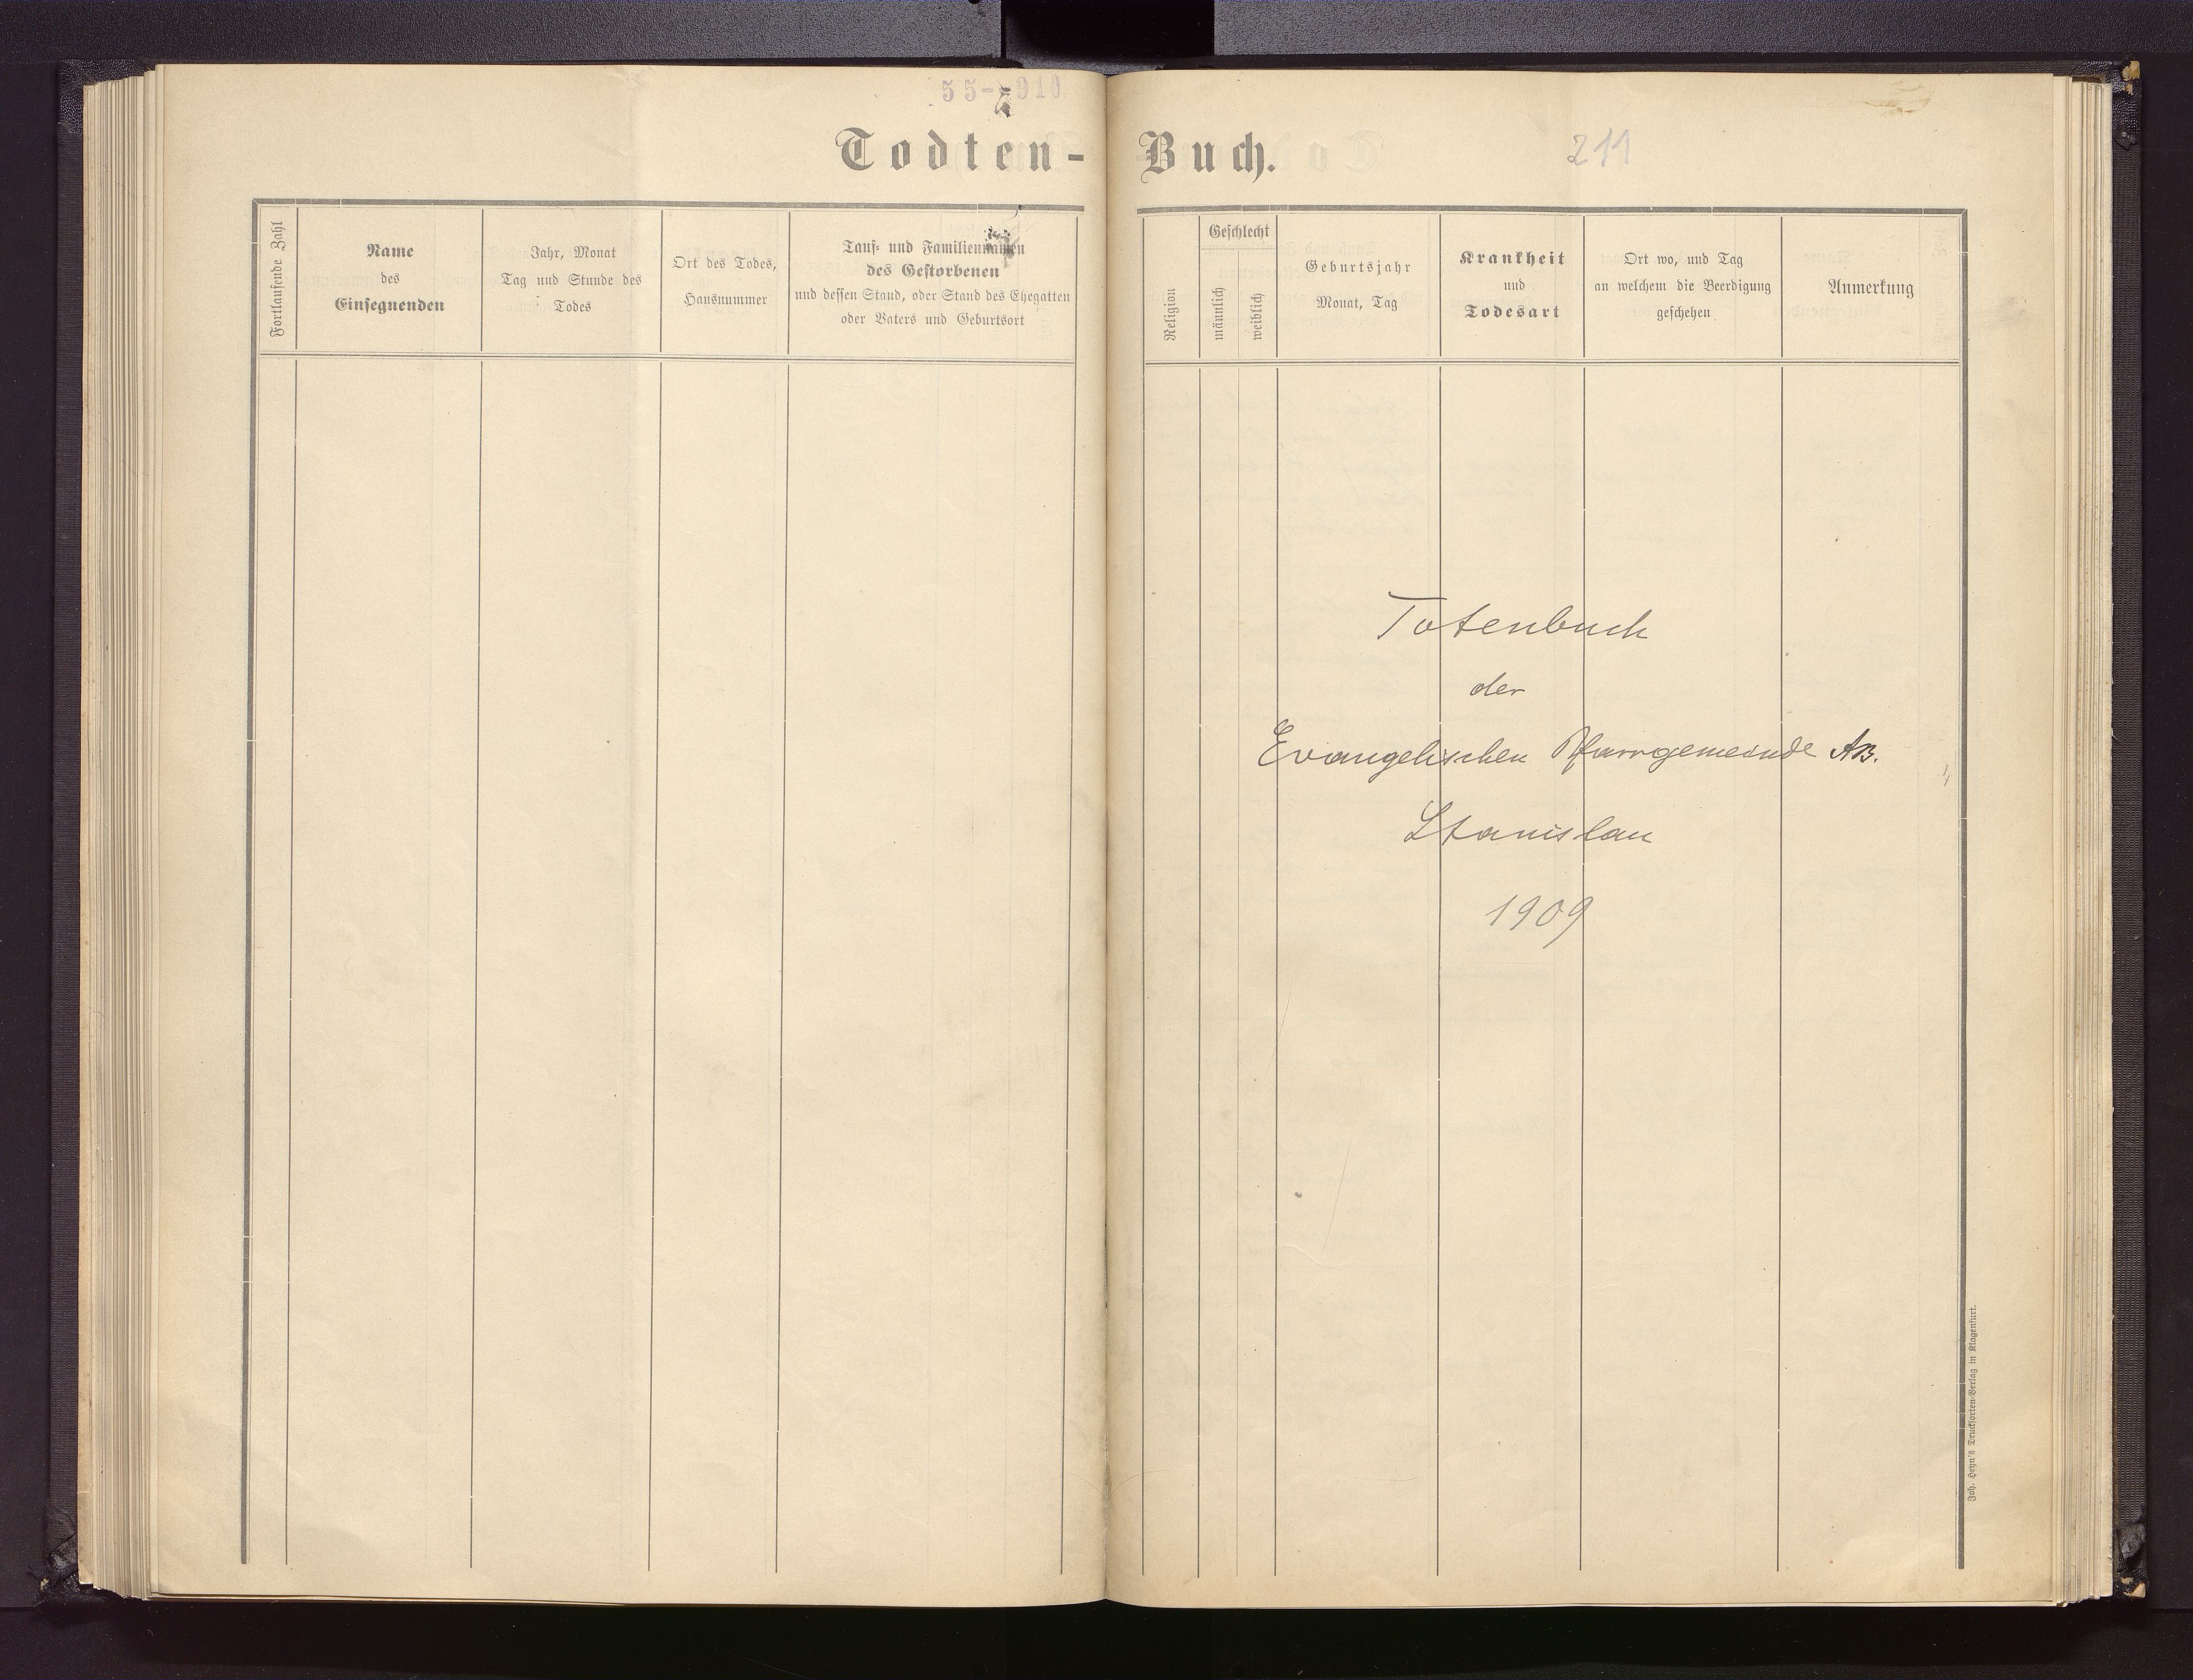 55-910
Todten-
Fortlaufende Zahl
Name
des
Einsegnenden
Jahr, Monat
Tag und Stunde des
Todes
Ort des Todes,
Hausnummer
Tauf- und Familiennamen
des Gestorbenen
und dessen Stand, oder Stand des Ehegatten
oder Vaters und Geburtsort
Buch.
211
Religion
Geschlecht
männlich
weiblich
Geburtsjahr
Monat, Tag
Krankheit
und
Todesart
Ort wo, und Tag
an welchem die Beerdigung
geschehen
Anmerkung
Totenbuch
der
Evangelischen Pfarrgemeinde AB.
Stanislau
1909
Joh. Heyn's Drucksorten-Verlag in Klagenfurt.